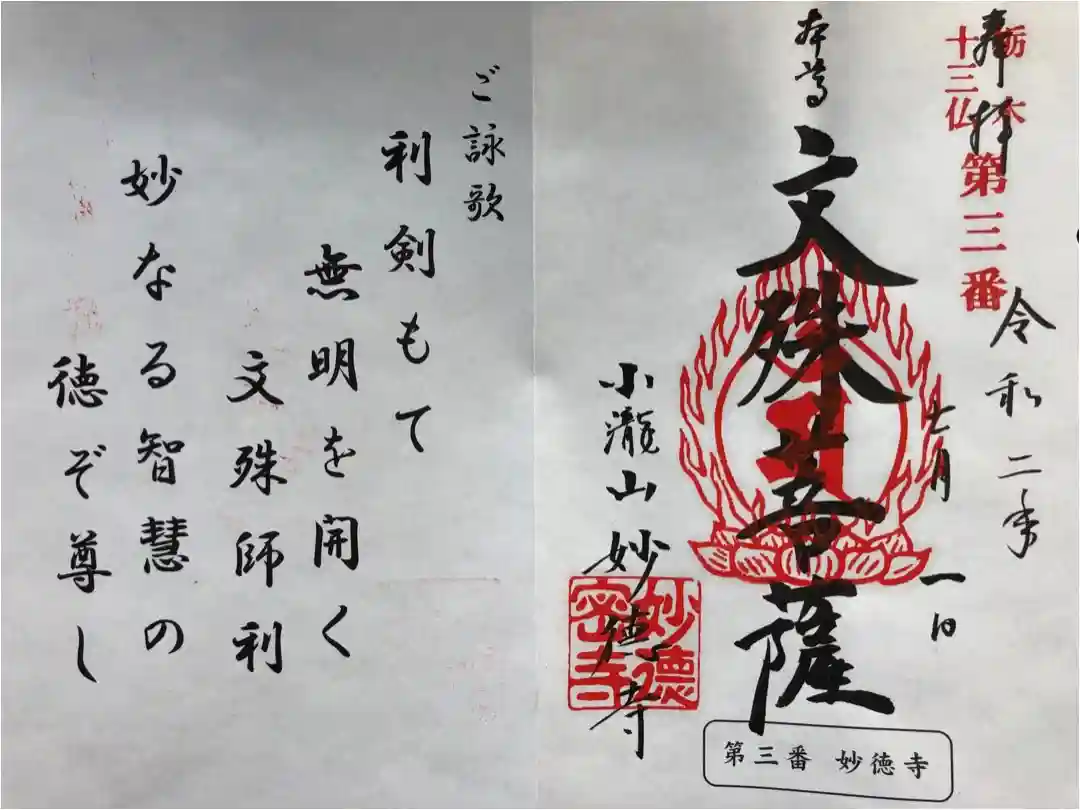 奉拝
栃木
十三仏
第三番
令和二年
七月一日
本尊
文殊菩薩
小瀧山妙徳寺
妙徳密寺
第三番 妙徳寺
ご詠歌
利剣もて
無明を開く
文殊師利
妙なる智慧の
徳ぞ尊し